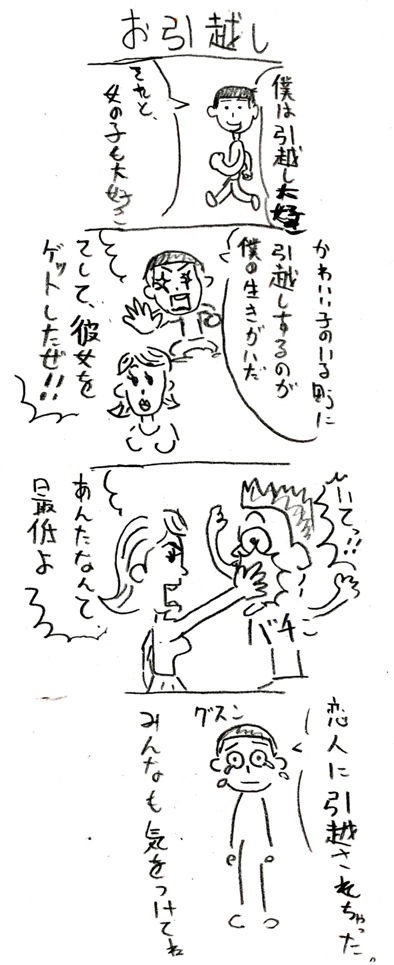 お引越し
僕は引越し大好き
それと、
女の子も大好き
かわいい子のいる町に
引越しするのが
僕の生きがいだ
そして、彼女を
ゲットしたぜ!!
いてっ!!
バチン
あんたなんて、
最低よ
恋人に引越されちゃった。
グスン
みんなも気をつけてね